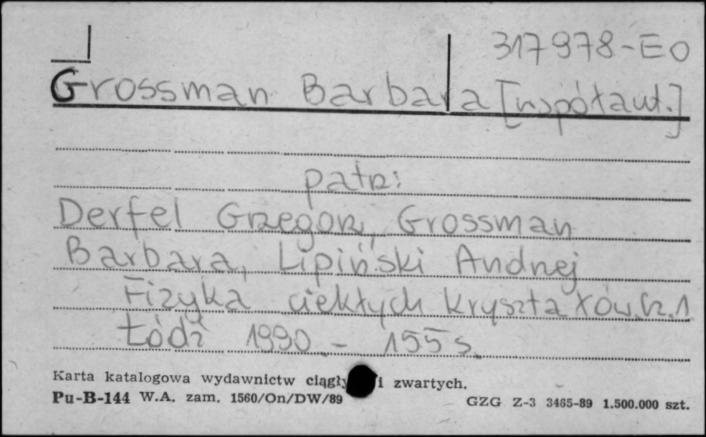 317978-EO
Grossman Barbara [współaut.]
patrz:
Derfel Grzegorz, Grossman
Barbara, Lipiński Andrzej
Fizyka ciekłych kryształów. Cz. 1
Łódź 1990. - 155 s.
Karta katalogowa wydawnictw ciągły i zwartych.
Pu-B-144 W.A. zam. 1560/On/DW/89 GZG Z-3 3465-89 1.500.000 szt.